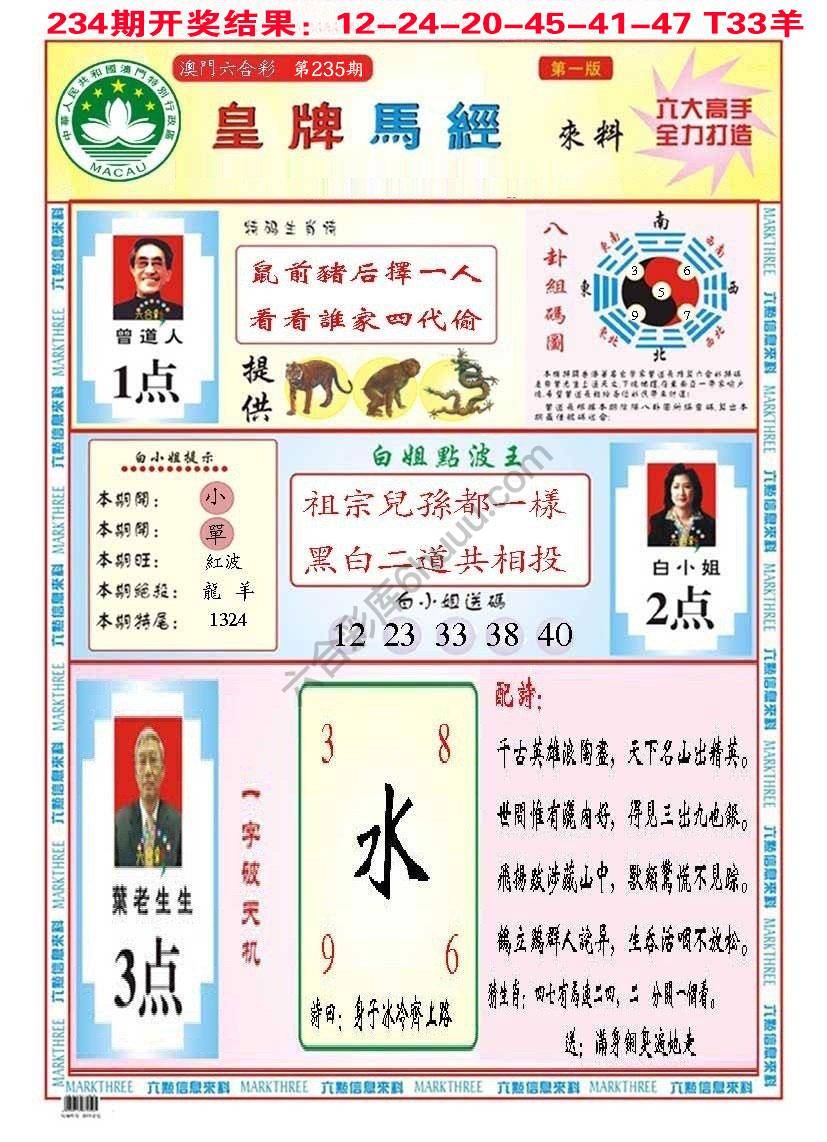 234期开奖结果：12-24-20-45-41-47 T33羊
澳門六合彩 第235期
第一版
中華人民共和國澳門特別行政區
MACAU
皇牌馬經
來料
六大高手
全力打造
特碼生肖詩
鼠前豬后擇一人
看看誰家四代偷
提供
曾道人
1点
八卦組碼圖
南
東南
西南
東
西
東北
西北
北
3
6
5
9
7
白小姐提示
本期開：小
本期開：單
本期旺：紅波
本期絕投：龍 羊
本期特尾：1324
白姐點波王
祖宗兒孫都一樣
黑白二道共相投
白小姐送碼
12 23 33 38 40
白小姐
2点
葉老生生
3点
一字破天机
3
8
水
9
6
詩曰：身子冰冷齊上路
配詩：
千古英雄浪陶盡，天下名山出精英。
世間惟有灑肉好，得見三出九也銀。
飛揚跋涉藏山中，獸類驚慌不見踪。
鶴立鷄群人詫异，生吞活咽不放松。
猜生肖：四七有馬連二四，二 分開一個看。
送：滿身銅臭遍地走
MARKTHREE 六點信息來料 MARKTHREE 六點信息來料 MARKTHREE 六點信息來料 MARKTHREE 六點信息來料 MARKTHREE
六合彩库6huuu.com